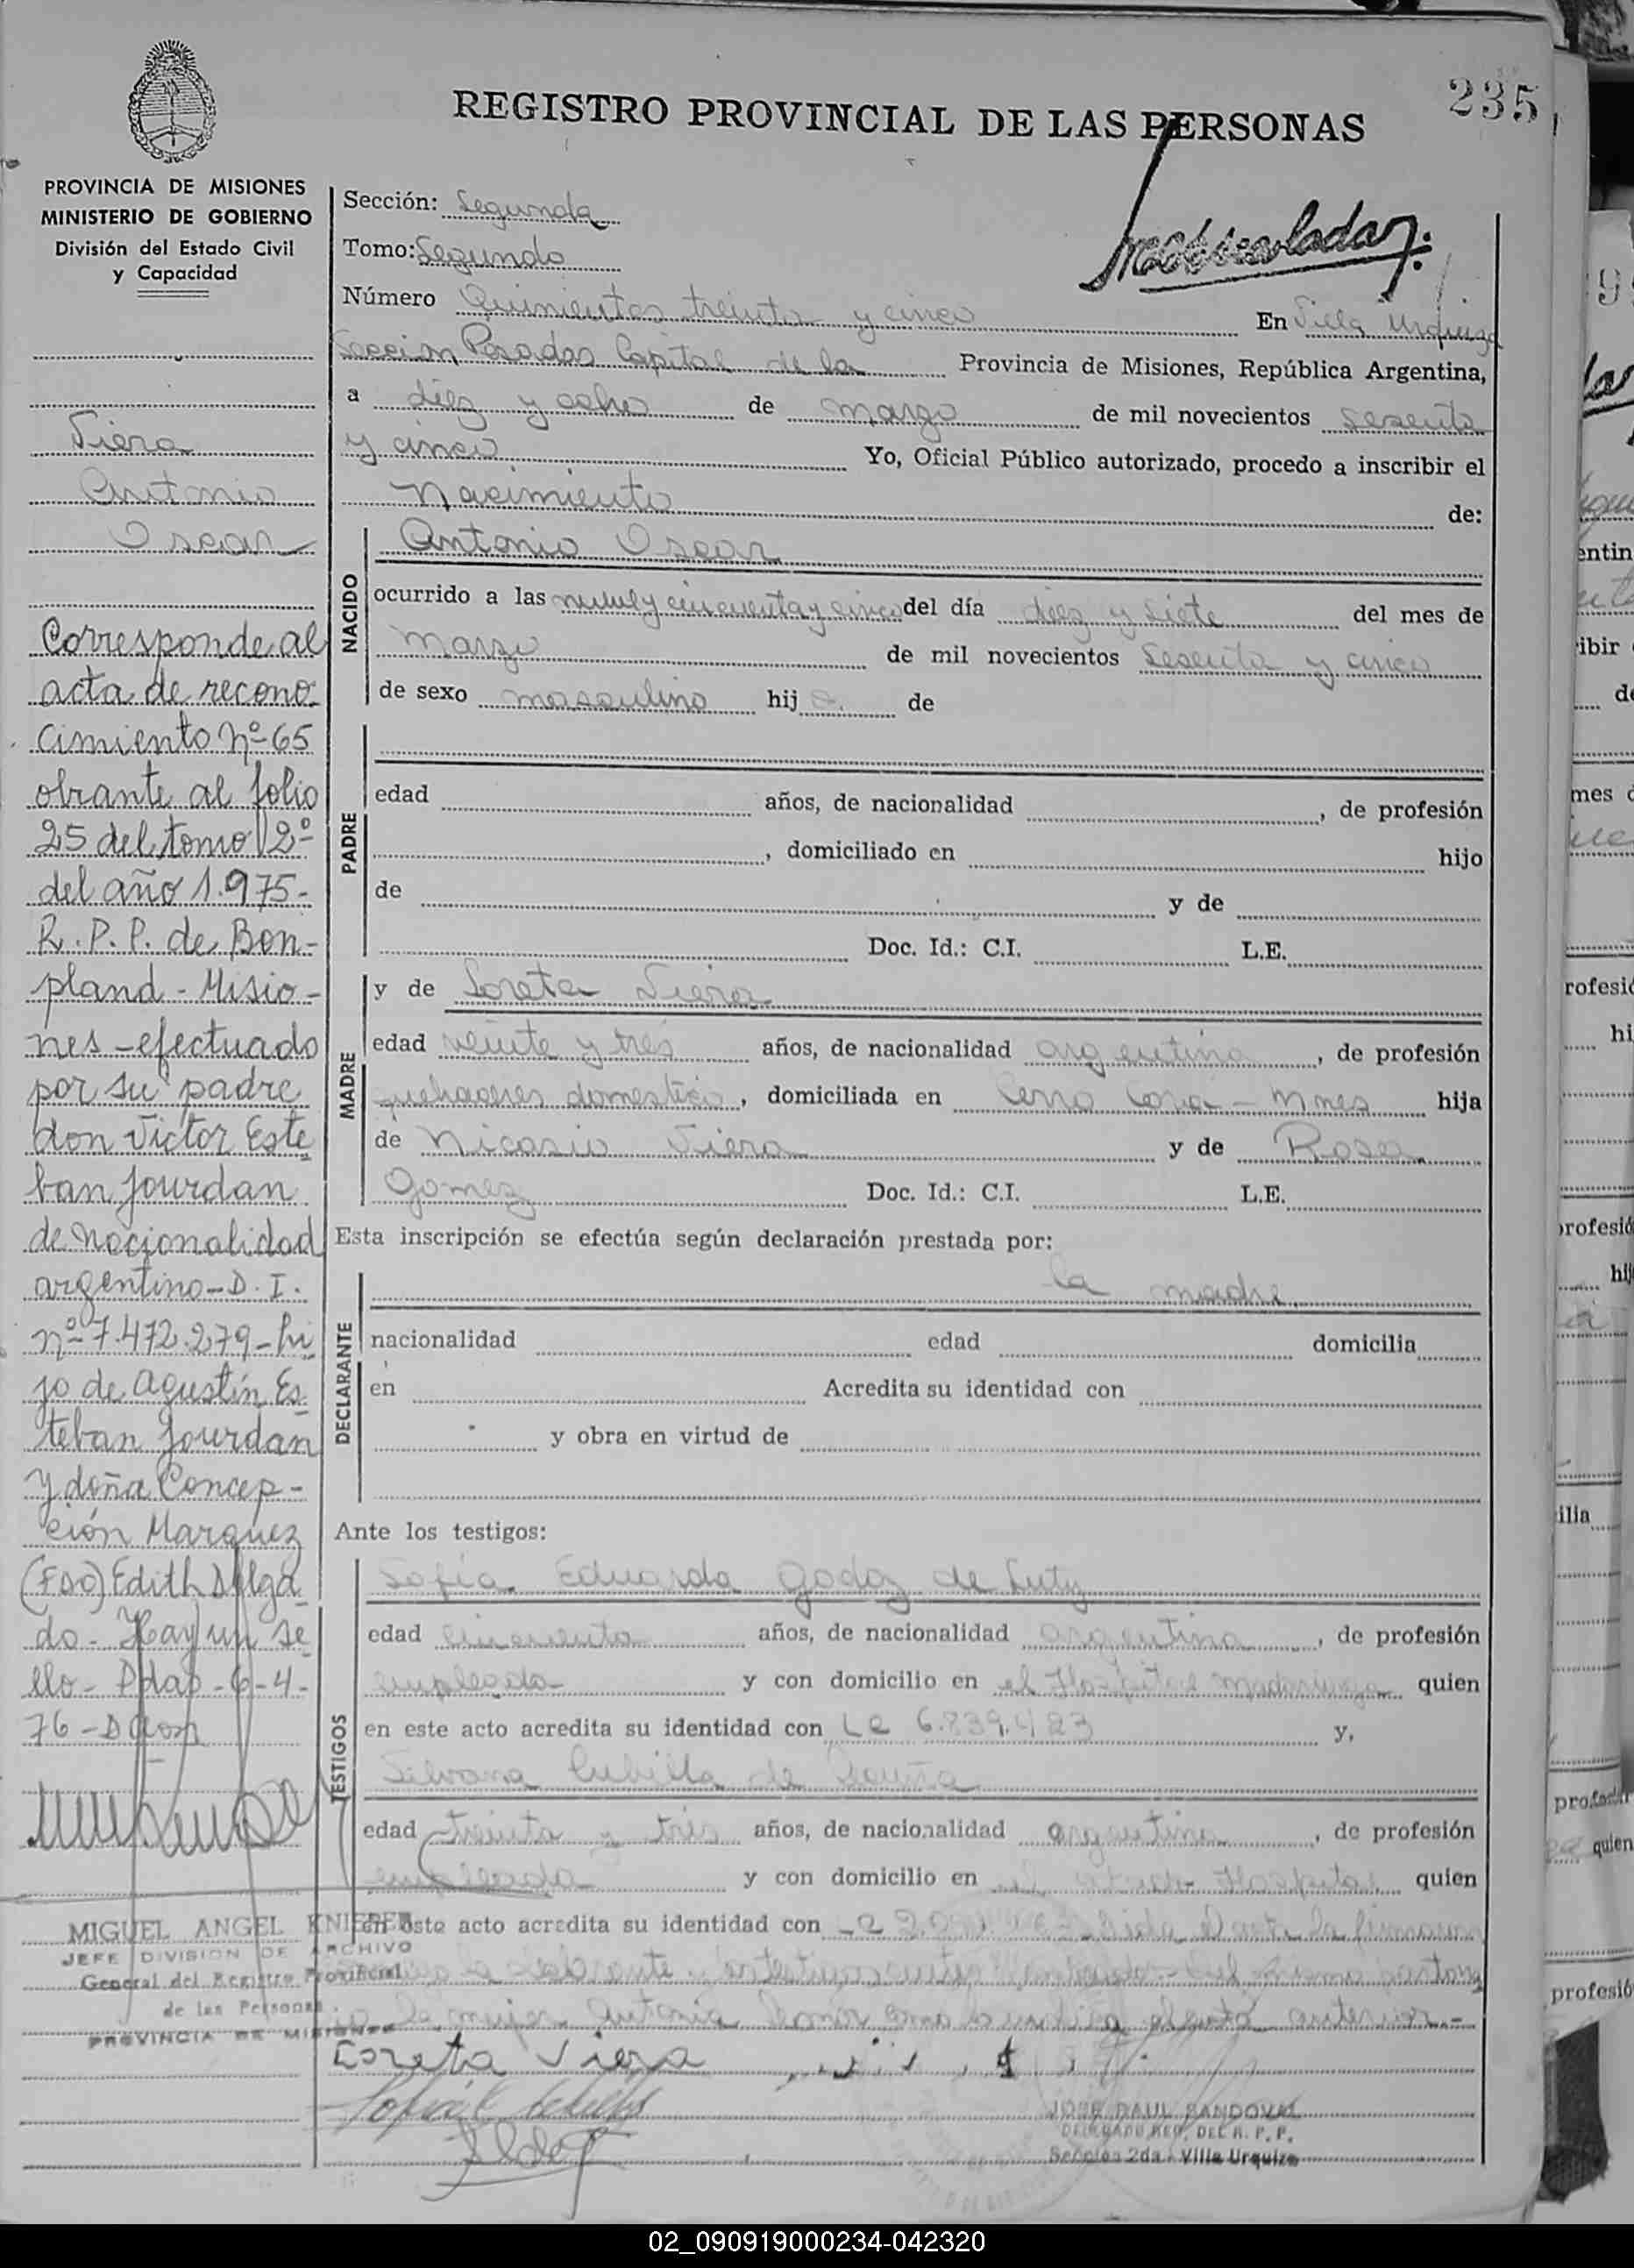 235
REGISTRO PROVINCIAL DE LAS PERSONAS
PROVINCIA DE MISIONES
MINISTERIO DE GOBIERNO
División del Estado Civil
y Capacidad
Viera
Antonio
Oscar
Corresponde al
acta de recono-
cimiento Nº 65
obrante al folio
25 del tomo 2º
del año 1.975-
R.P.P. de Bon-
pland - Misio-
nes - efectuado
por su padre
don Victor Este
ban Jourdan
de nacionalidad
argentino - D.I.
nº 7.472.279 - hi
jo de Agustín Es
teban Jourdan
y doña Concep-
ción Marquez
(Fdo) Edith Delga
do - Hay un se
llo - Pdas - 6-4-
76 -
MIGUEL ANGEL KNIEPER
JEFE DIVISION DE ARCHIVO
General del Registro Provincial
de las Personas
PROVINCIA DE MISIONES
Sección: Segunda
Tomo: Segundo
Número Quinientos treinta y cinco En Villa Urquiza
Seccion Posadas Capital de la Provincia de Misiones, República Argentina,
a diez y ocho de marzo de mil novecientos sesenta
y cinco Yo, Oficial Público autorizado, procedo a inscribir el
Nacimiento de:
NACIDO
Antonio Oscar
ocurrido a las nueve y cincuenta y cinco del día diez y siete del mes de
marzo de mil novecientos sesenta y cinco
de sexo masculino hijo de
PADRE
edad años, de nacionalidad , de profesión
, domiciliado en hijo
de y de
Doc. Id.: C.I. L.E.
MADRE
y de Loreta Viera
edad veinte y tres años, de nacionalidad argentina , de profesión
quehaceres domestico , domiciliada en Cerro Corá - Mnes hija
de Nicasio Viera y de Rosa
Gomez Doc. Id.: C.I. L.E.
Esta inscripción se efectúa según declaración prestada por:
DECLARANTE
la madre
nacionalidad edad domicilia
en Acredita su identidad con
y obra en virtud de
Ante los testigos:
TESTIGOS
Sofia Eduarda Godoy de
edad cincuenta años, de nacionalidad argentina , de profesión
empleada y con domicilio en el Hospital Madariaga quien
en este acto acredita su identidad con LC 6.839.423 y,
Silvana Cubilla de
edad treinta y tres años, de nacionalidad argentina , de profesión
empleada y con domicilio en Hospital quien
en este acto acredita su identidad con
la mujer Antonia anterior.-
Loreta Viera
JOSE RAUL SANDOVAL
DELEGADO REG. DEL R. P. P.
Sección 2da. Villa Urquiza
02_090919000234-042320